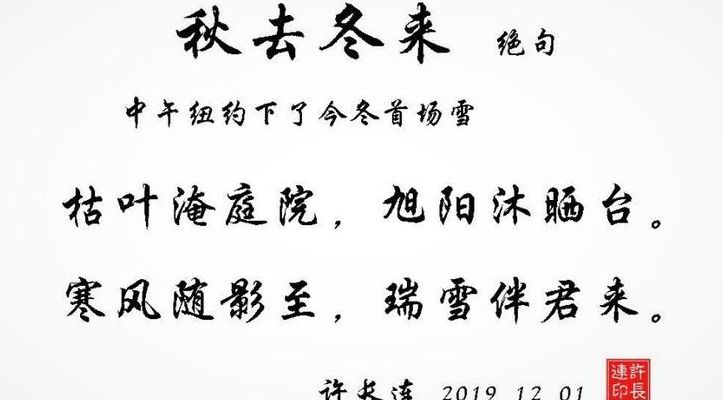 秋去冬来 绝句
中午纽约下了今冬首场雪
枯叶淹庭院，旭阳沐晒台。
寒风随影至，瑞雪伴君来。
许长连 2019 12 01
許長連印